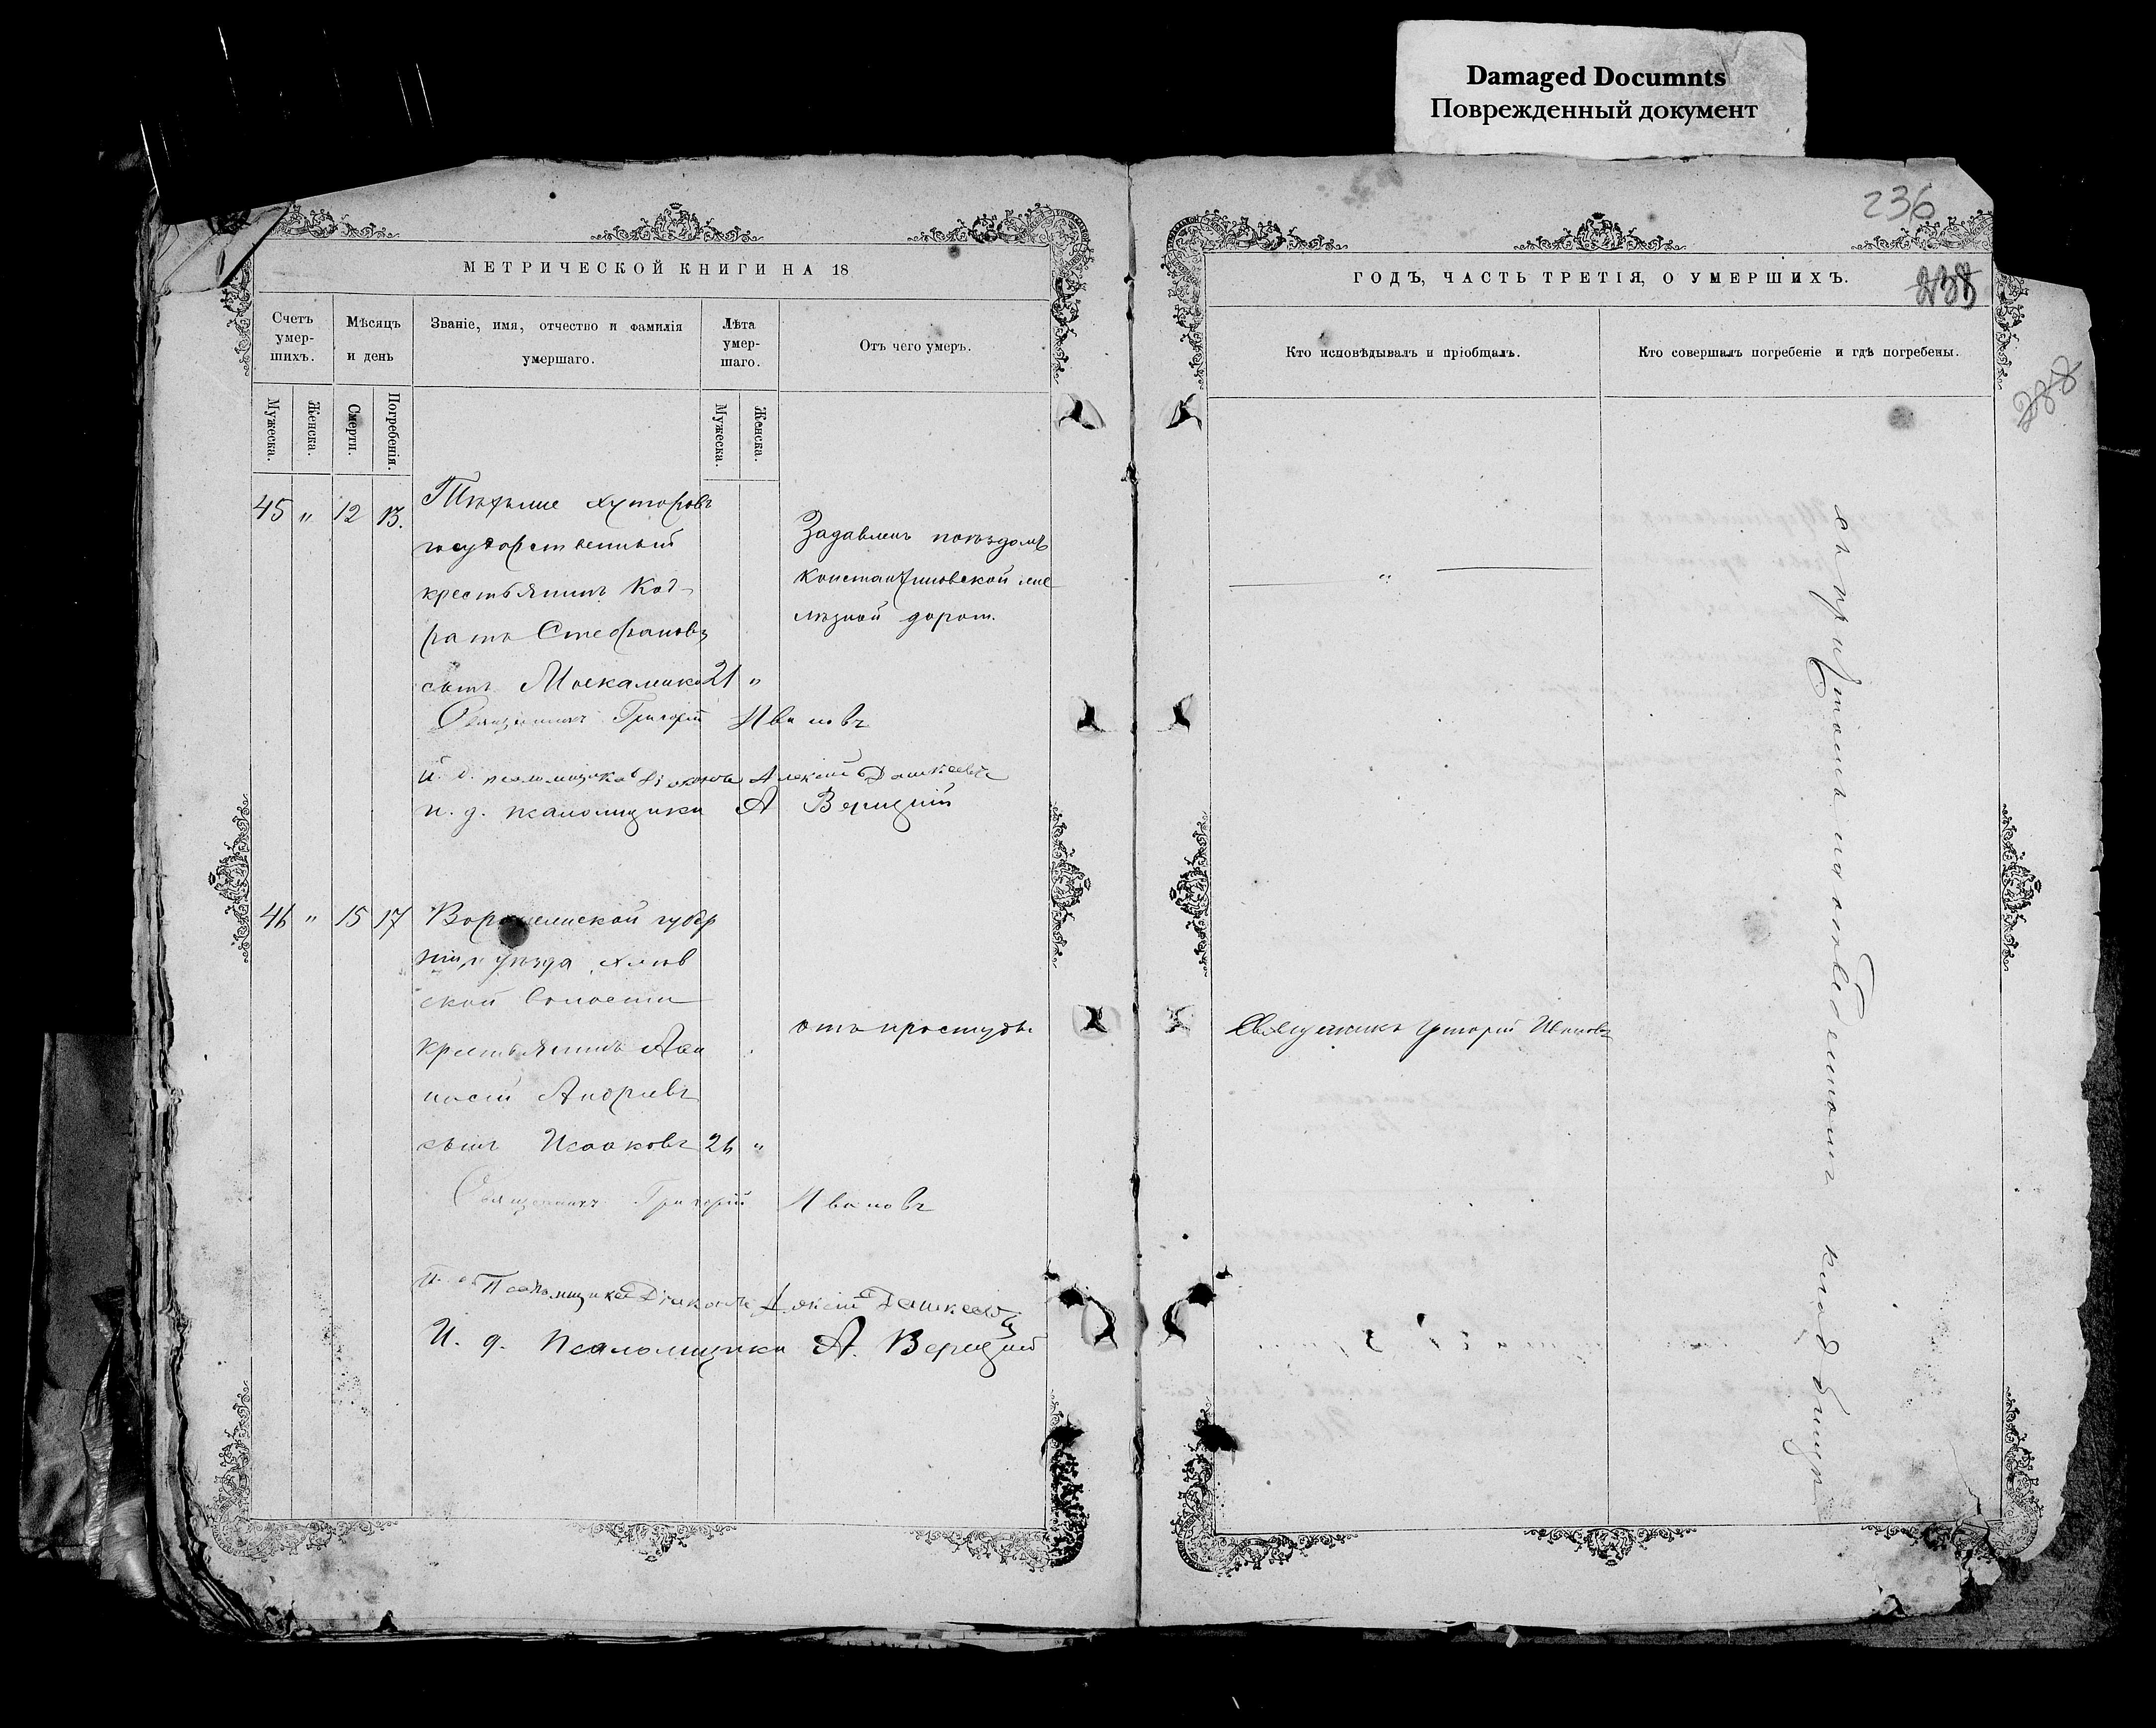 Damaged Documnts
Поврежденный документ
236
238
238
МЕТРИЧЕСКОЙ КНИГИ НА 18
Счетъ умер-шихъ.
Мѣсяцъ и день
Званіе, имя, отчество и фамилія умершаго.
Лѣта умер-шаго.
Отъ чего умеръ.
Мужеска.
Женска.
Смерти.
Погребенія.
Мужеска.
Женска.
45 " 12 13.
хуторовъ
государственный
крестьянинъ Код-
ратъ Стефановъ
сынъ 21 "
Задавленъ поѣздомъ
Константиновской же
лѣзной дорог.
Священникъ Григорій Ивановъ
И. д. псаломщика Діаконъ Алексій Дашкеевъ
и. д. псаломщика А Верицкій
46 " 15 17
Воронежской губер
ніи уѣзда
ской волости
крестьянинъ Афа
насій Андреевъ
сынъ Исаковъ 26 "
отъ простуды
Священникъ Григорій Ивановъ
И. д. Псаломщика Діаконъ Алексій Дашкеевъ
И. д. Псаломщика А. Верицкій
ГОДЪ, ЧАСТЬ ТРЕТІЯ, О УМЕРШИХЪ.
Кто исповѣдывалъ и пріобщалъ.
Кто совершалъ погребеніе и гдѣ погребены.
"
Священникъ Григорій Ивановъ
на кладбищѣ